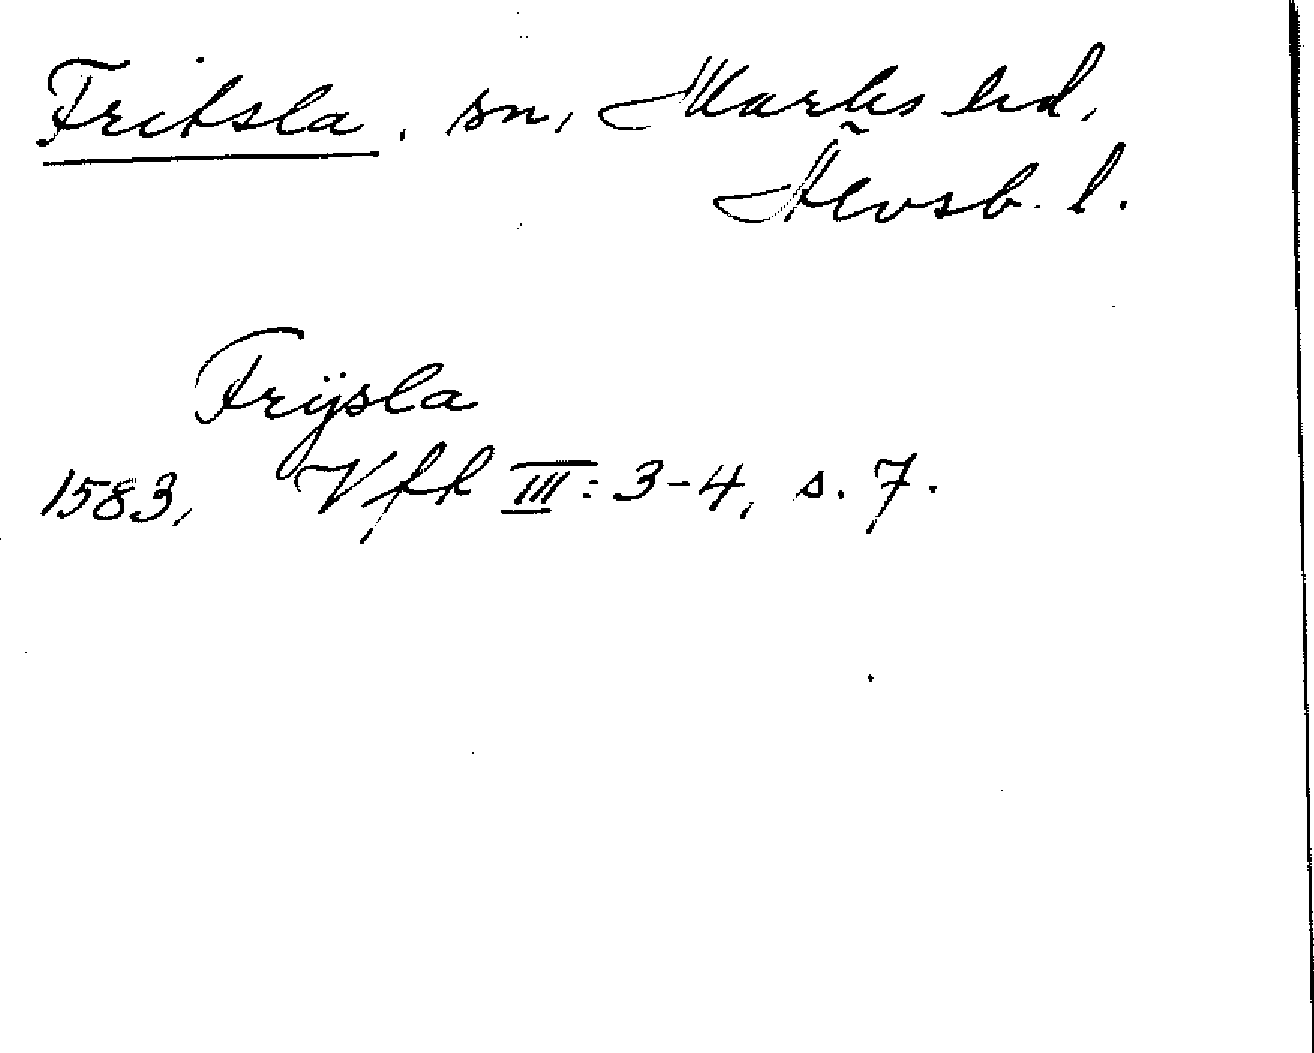 Fritsla. sn, Marks hd,
Älvsb. l.
Frÿsla
1583, Vfk III: 3-4, s. 7.